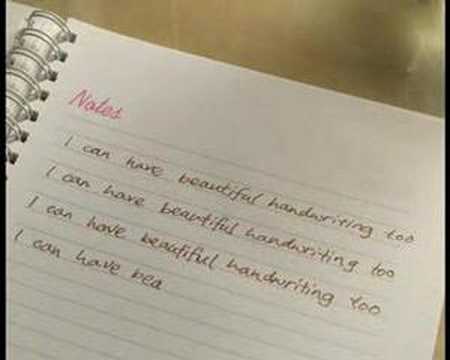 Notes
I can have beautiful handwriting too
I can have beautiful handwriting too
I can have beautiful handwriting too
I can have bea